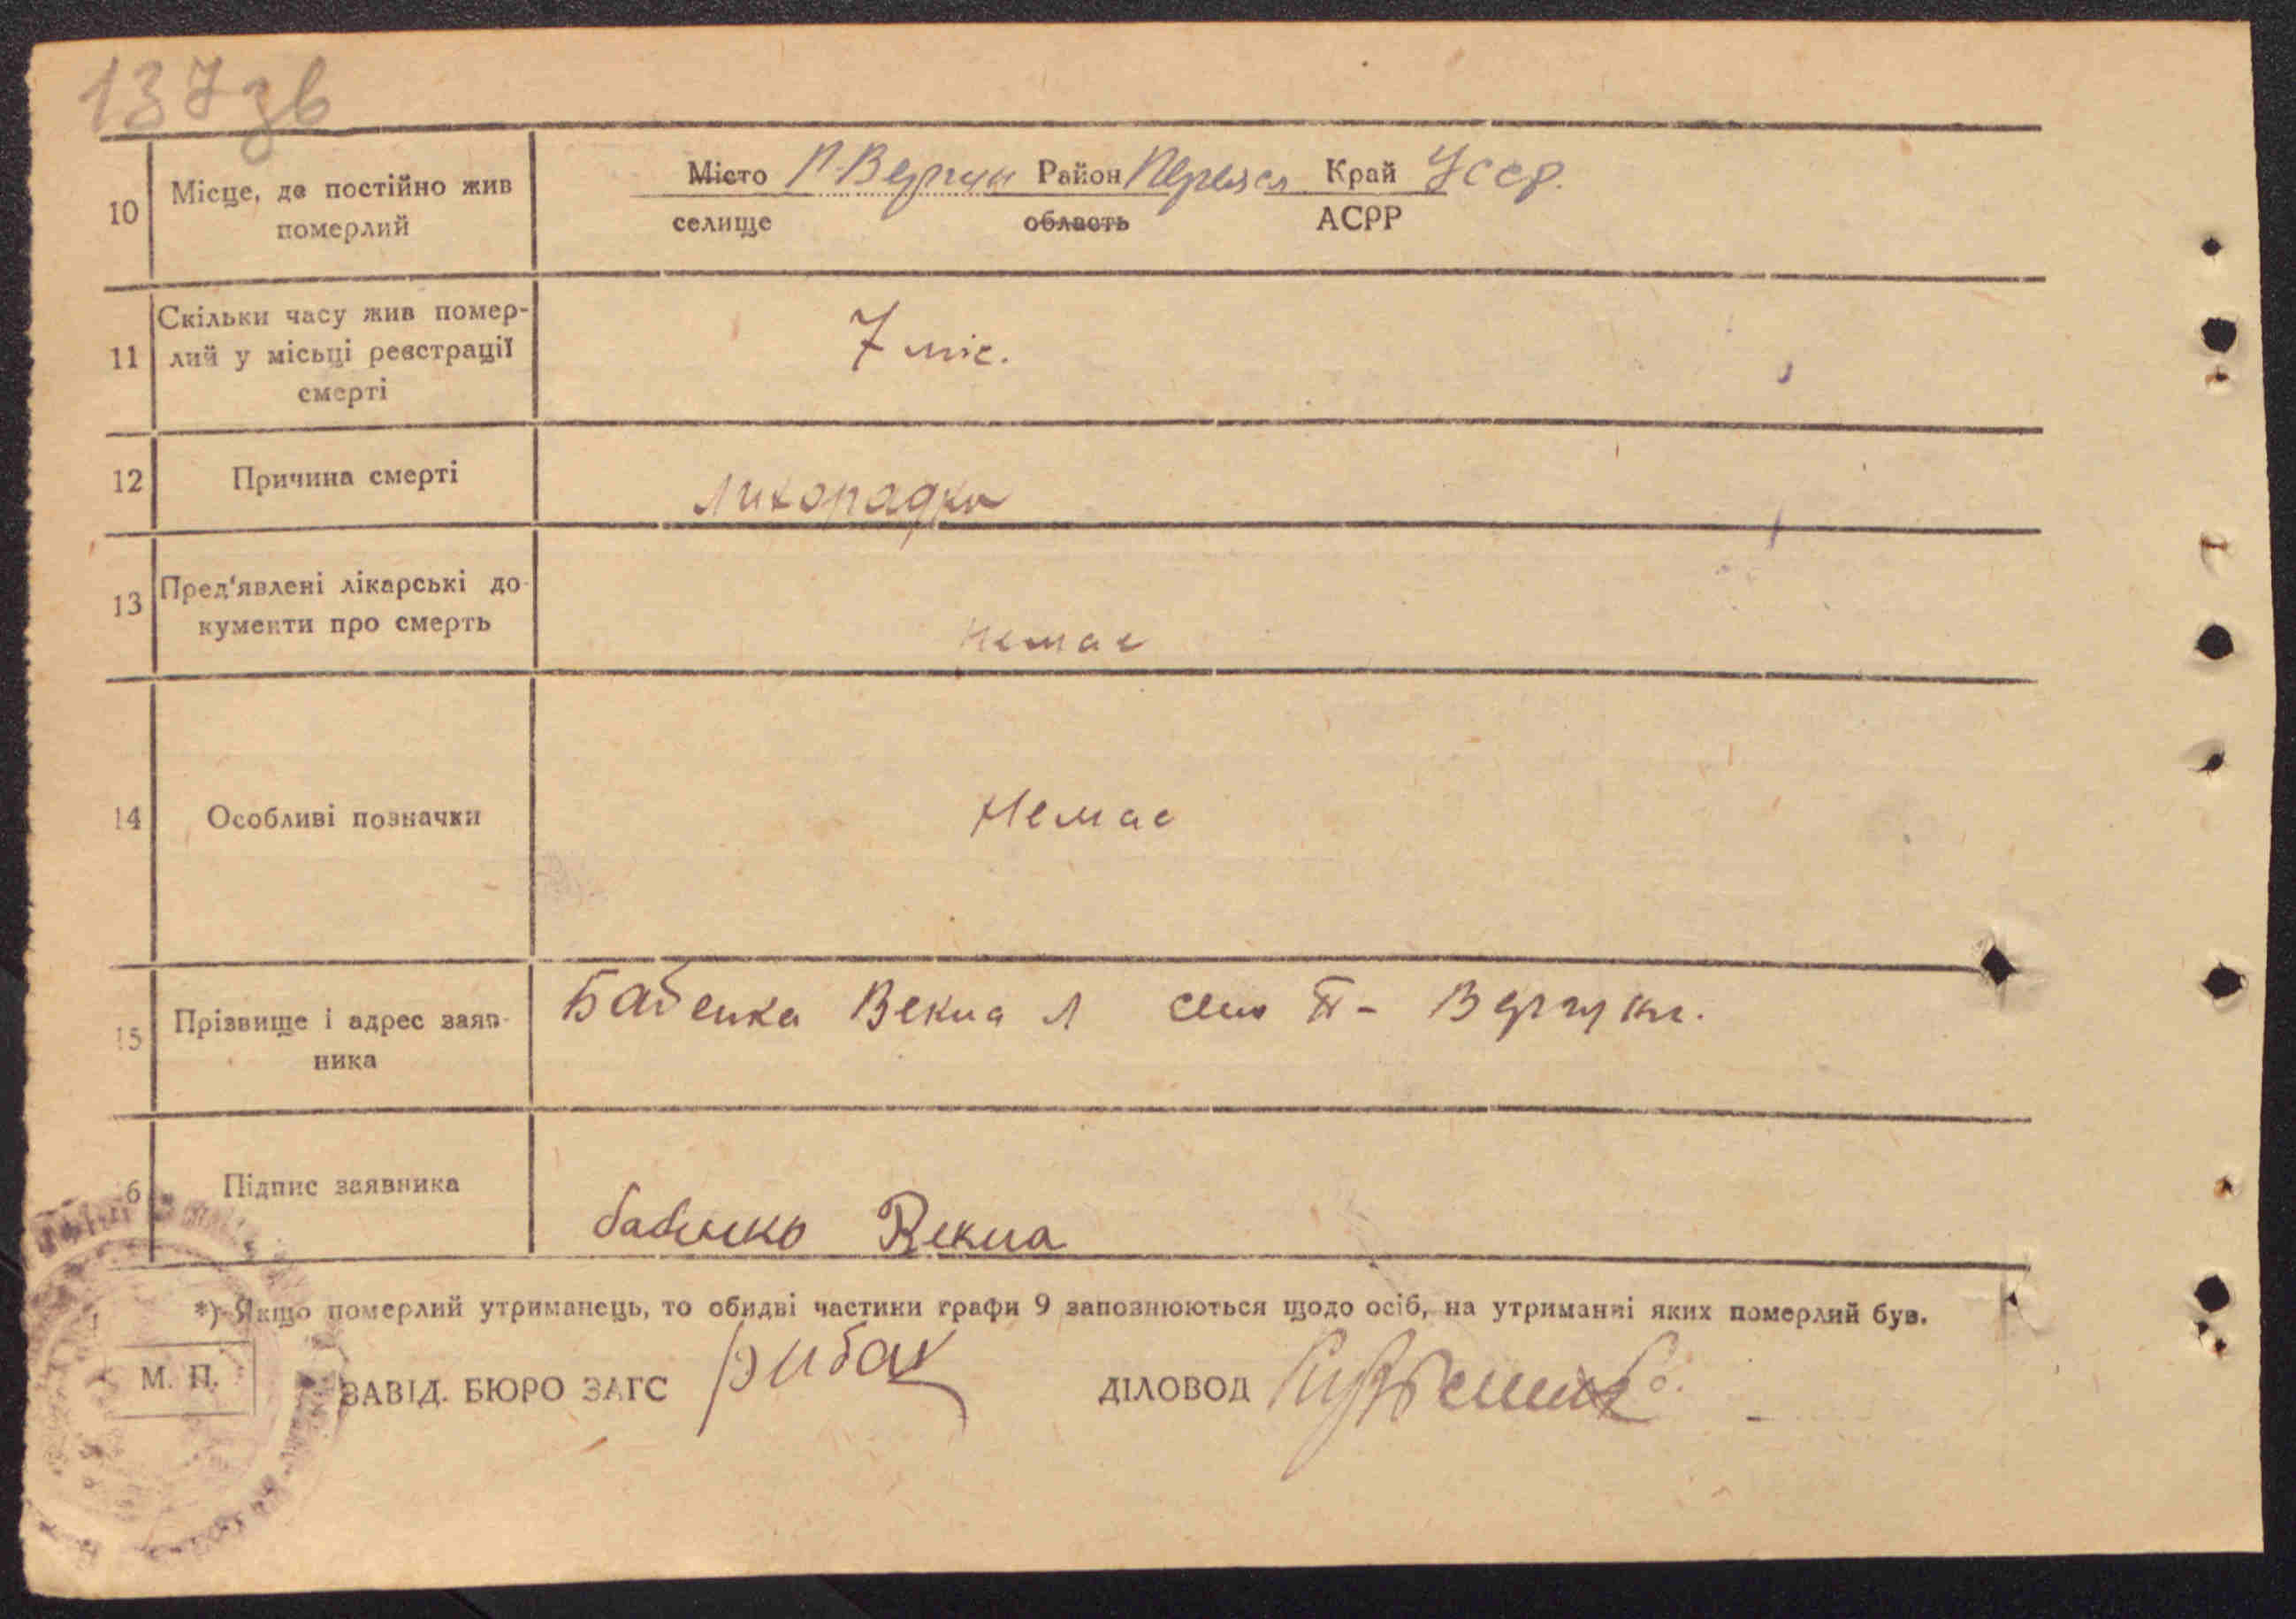 137 зв
10 Місце, де постійно жив померлий
Місто П-Вергун Район Переясл Край Усср.
селище область АСРР
11 Скільки часу жив помер-
лий у місьці реєстрації
смерті
7 міс.
12 Причина смерті
Лихорадка
13 Пред'явлені лікарські до-
кументи про смерть
Немає
14 Особливі позначки
Немає
15 Прізвище і адрес заяв-
ника
Бабенка Векла Л село П-Вергуни.
6 Підпис заявника
бабенко Векла
*) Якщо померлий утриманець, то обидві частини графи 9 заповнюються щодо осіб, на утриманні яких померлий був.
М. П.
ЗАВІД. БЮРО ЗАГС Рибак ДІЛОВОД